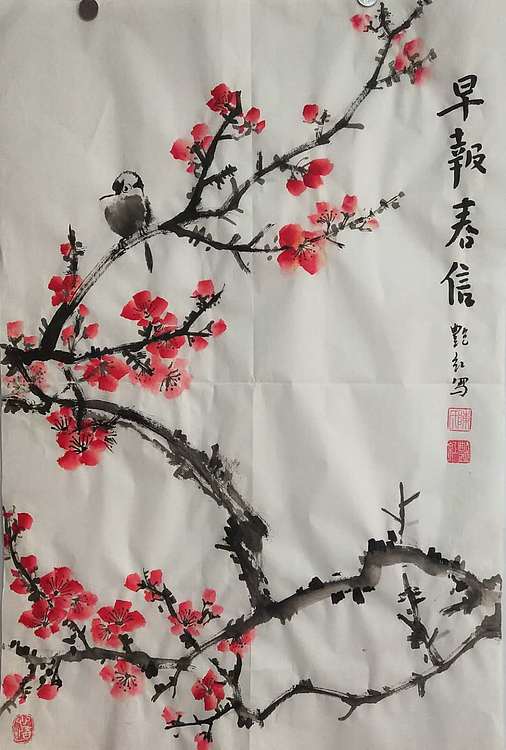 早報春信
艷红写